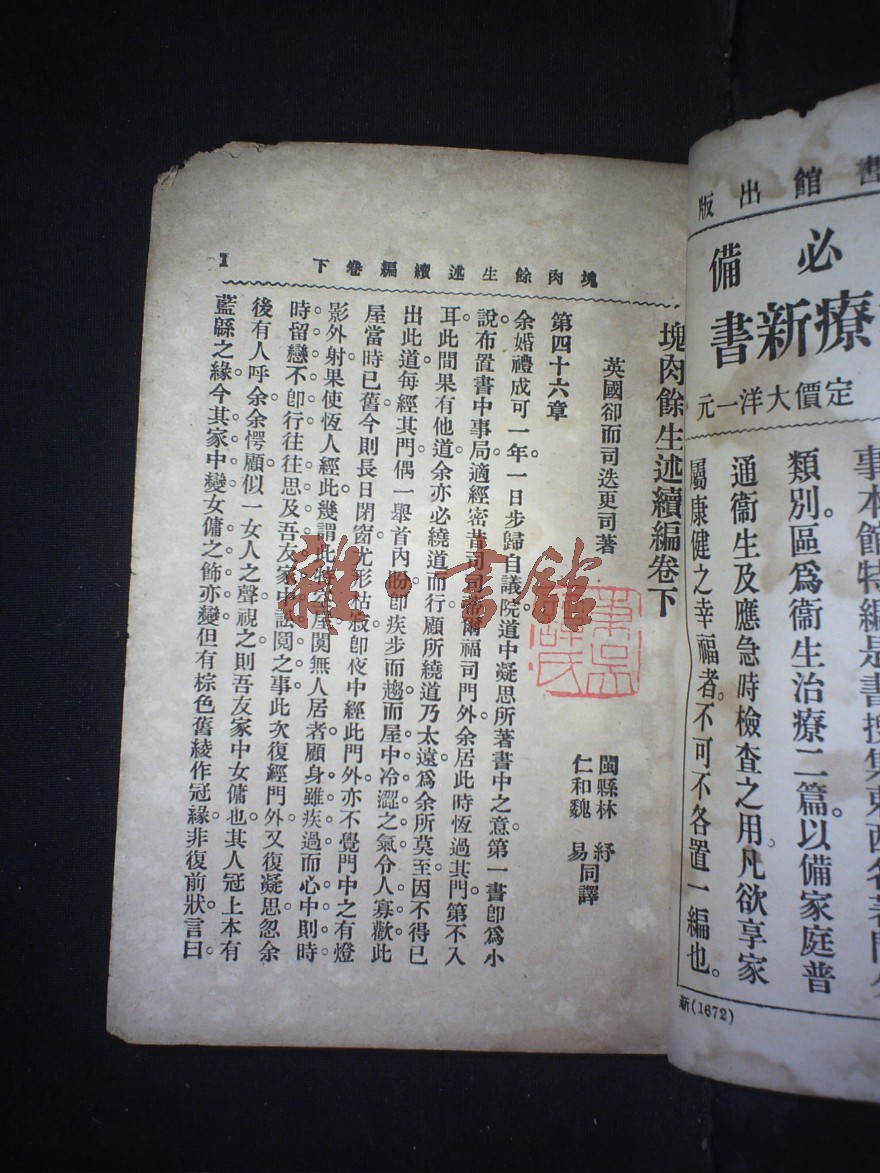 書館出版
必備
療新書
定價大洋一元
事本館特編是書搜集東西名著
類別。區爲衞生治療二篇。以備家庭普
通衞生及應急時檢查之用。凡欲享家
屬康健之幸福者。不可不各置一編也。
新(1672)
塊肉餘生述續編卷下
1
塊肉餘生述續編卷下
英國卻而司迭更司著
閩縣林紓
仁和魏易同譯
第四十六章
余婚禮成可一年。一日步歸自議院。道中凝思所著書中之意。第一書卽爲小
說。布置書中事局。適經密昔司司蒂爾福司門外。余居此時恆過其門。第不入
耳。此間果有他道。余亦必繞道而行。顧所繞道乃太遠。爲余所莫至。因不得已
出此道。每經其門。偶一舉首內盼。卽疾步而趨。而屋中冷澀之氣。令人寡歡。此
屋當時已舊。今則長日閉窗。尤形枯寂。卽夜中經此門外。亦不覺門中之有燈
影外射。果使恆人經此。幾謂此特空屋。闃無人居者。顧身雖疾過。而心中則時
時留戀不卽行。往往思及吾友家中訟鬩之事。此次復經門外。又復凝思。忽余
後有人呼余。余愕顧。似一女人之聲。視之則吾友家中女傭也。其人冠上本有
藍緜之緣。今其家中變。女傭之飾亦變。但有棕色舊綾作冠緣。非復前狀。言曰。
雜·書館